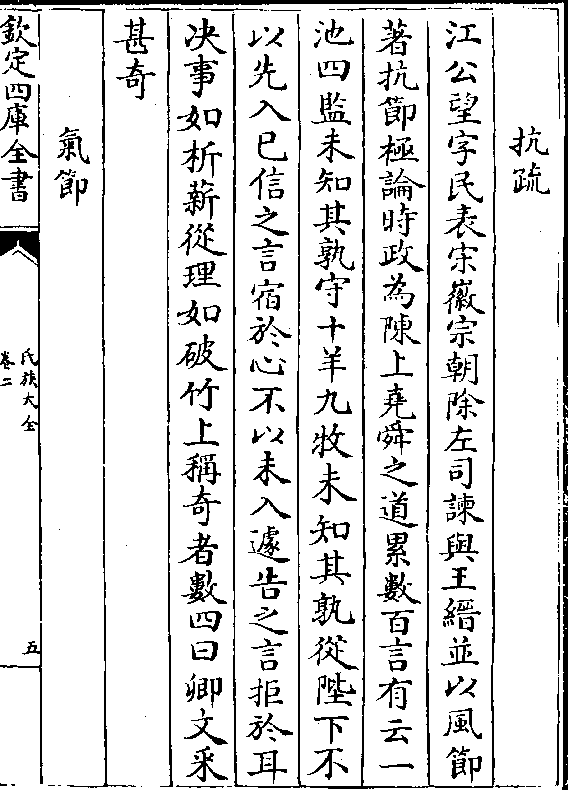 抗䟽
江公望字民表宋徽宗朝除左司諫與王縉並以風節
著抗節極論時政為陳上堯舜之道累數百言有云一
池四監未知其孰守十羊九牧未知其孰從陛下不
以先入已信之言宿於心不以未入遽告之言拒於耳
决事如析薪從理如破竹上稱奇者數四曰卿文采
甚奇
氣節
欽定四庫全書
氏族大全
卷二
五